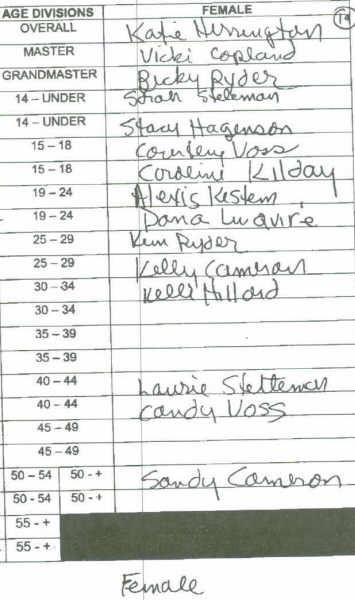 AGE DIVISIONS FEMALE
OVERALL Katie Herrington
MASTER Vicki Copland
GRANDMASTER Becky Ryder
14 – UNDER Sarah Stelleman
14 – UNDER Stacy Hagenson
15 – 18 Courteny Voss
15 – 18 Caroline Kilday
19 – 24 Alexis Kestem
19 – 24 Dana
25 – 29 Kim Ryder
25 – 29 Kelly Cameron
30 – 34 Kelli Hillard
30 – 34
35 – 39
35 – 39
40 – 44 Laurie Stelleman
40 – 44 Candy Voss
45 – 49
45 – 49
50 – 54 50 - + Sandy Cameron
50 - 54 50 - +
55 - +
55 - +
Female